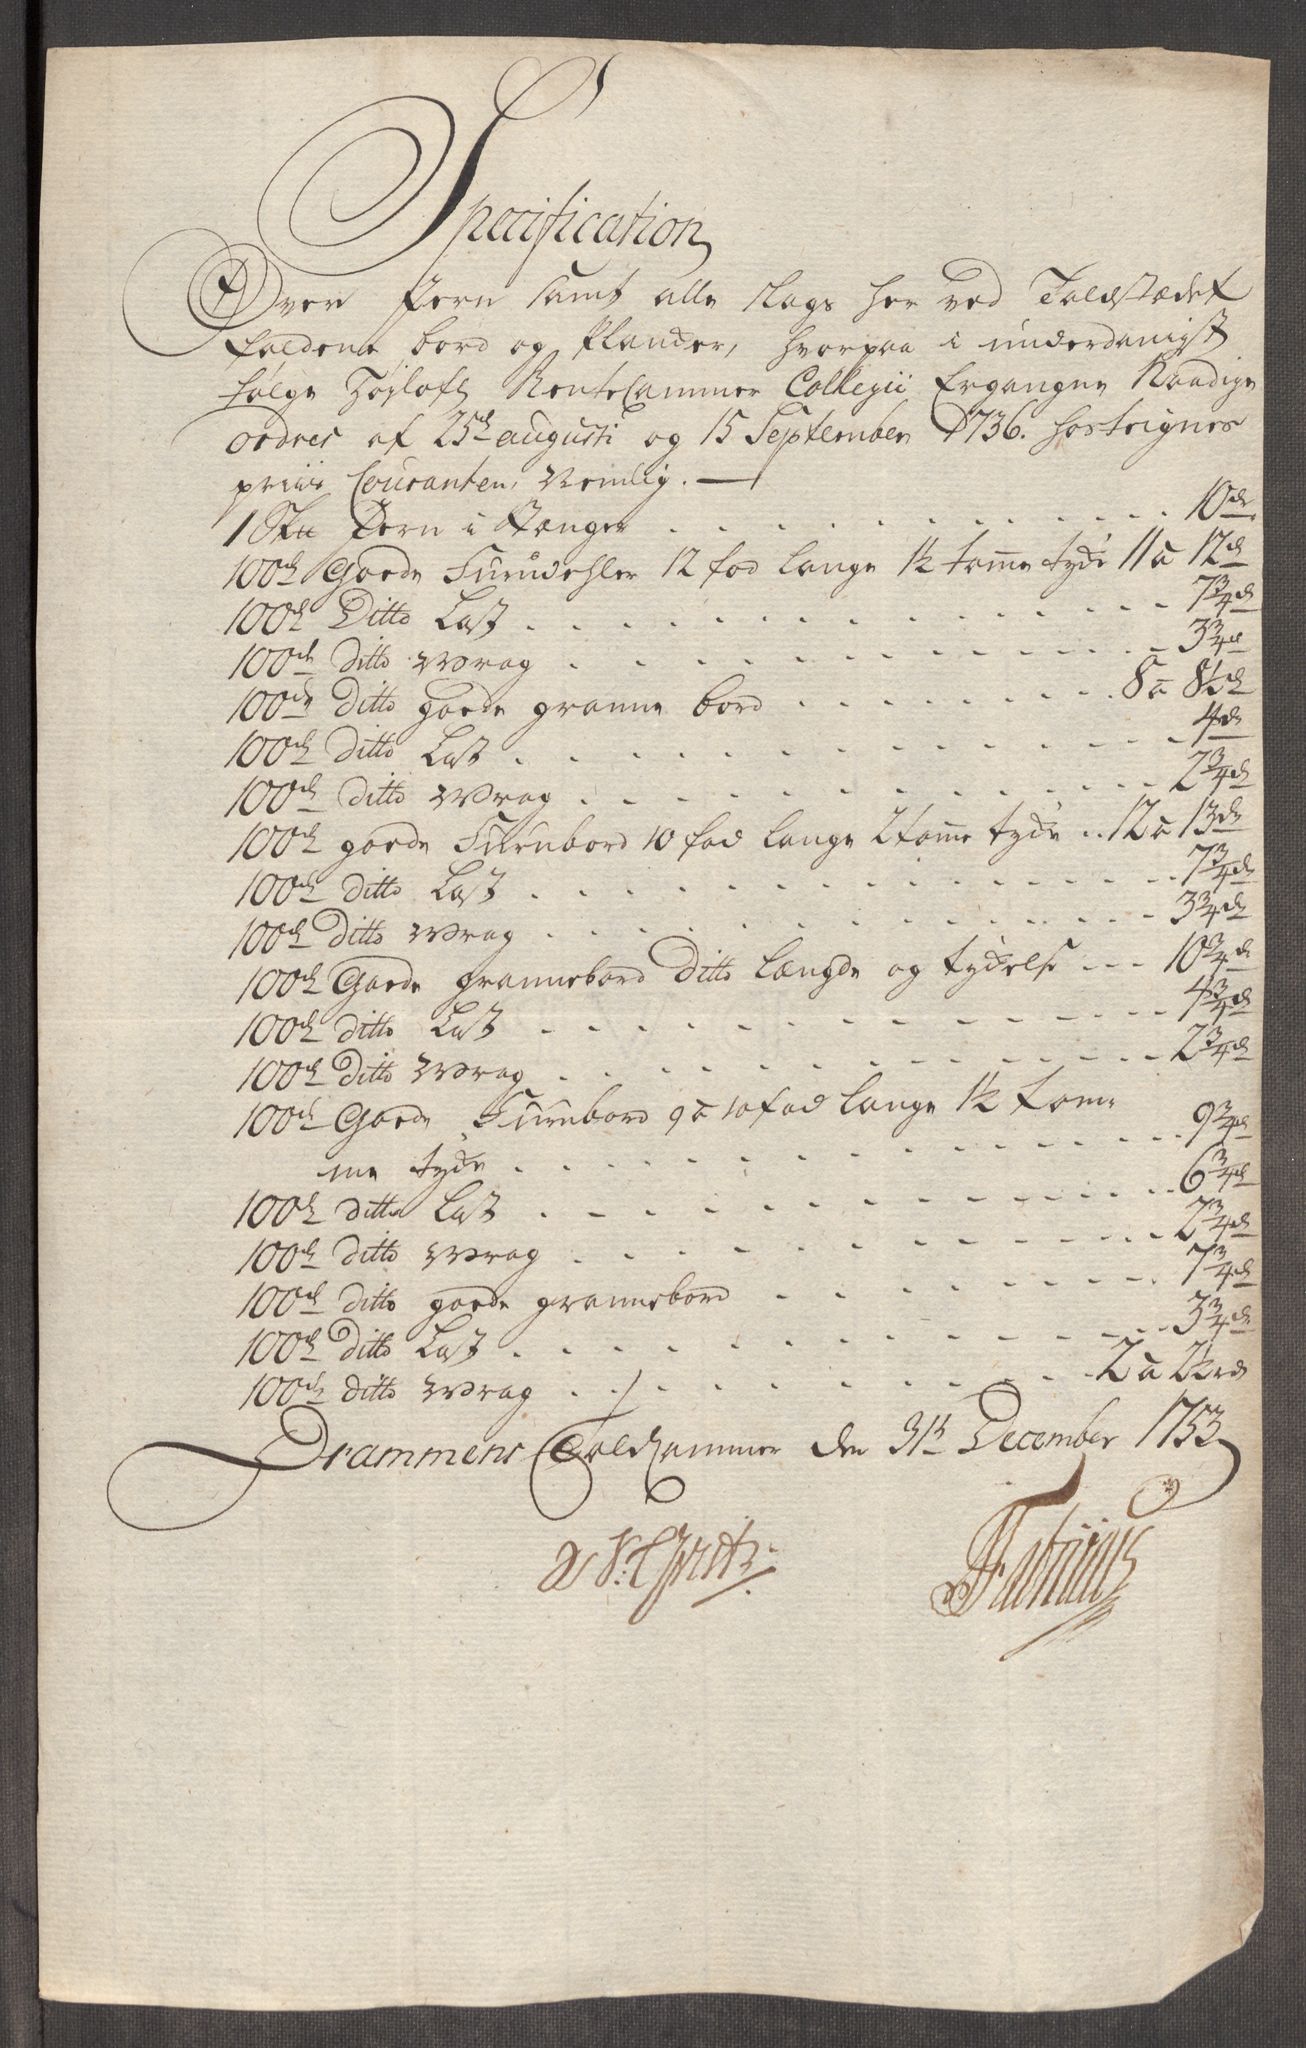 Specification
Over Jern samt alle slags her ved Toldstædet
faldene bord og Plancker, hvorpaa i underdanigst
følge Høylofl. RenteCammer Collegii Ergangne Naadige
ordres af 25de augusti og 15 September 1736. hosteignes
priis Couranten, Nemlig.
1 Sk℔ Jern i Stænger . . . 10rd
100de Goede Furudehler 12 fod lange 1½ tomme tyde 11 a 12rd
100de Ditto Last . . . 7¾rd
100de ditto Wrag . . . 3¾rd
100de ditto goede granne bord . . . 8 a 8½rd
100de ditto Last . . . 4rd
100de ditto Wrag . . . 2¾rd
100de goede Furubord 10 fod lange 2 tomme tyde . . 12 a 13rd
100de ditto Last . . . 7¾rd
100de ditto Wrag . . . 3¾rd
100de Goede grannebord ditto længde og tydelse . . . 10¾rd
100de ditto Last . . . 4¾rd
100de ditto Wrag . . . 2¾rd
100de Goede Furubord 9 a 10 fod lange 1½ tom-
me tyde . . . 9¾rd
100de ditto Last . . . 6¾rd
100de ditto Wrag . . . 2¾rd
100de ditto goede grannebord . . . 7¾rd
100de ditto Last . . . 3¾rd
100de ditto Wrag . . . 2 a 2½rd
Drammens Toldkammer den 31te December 1753